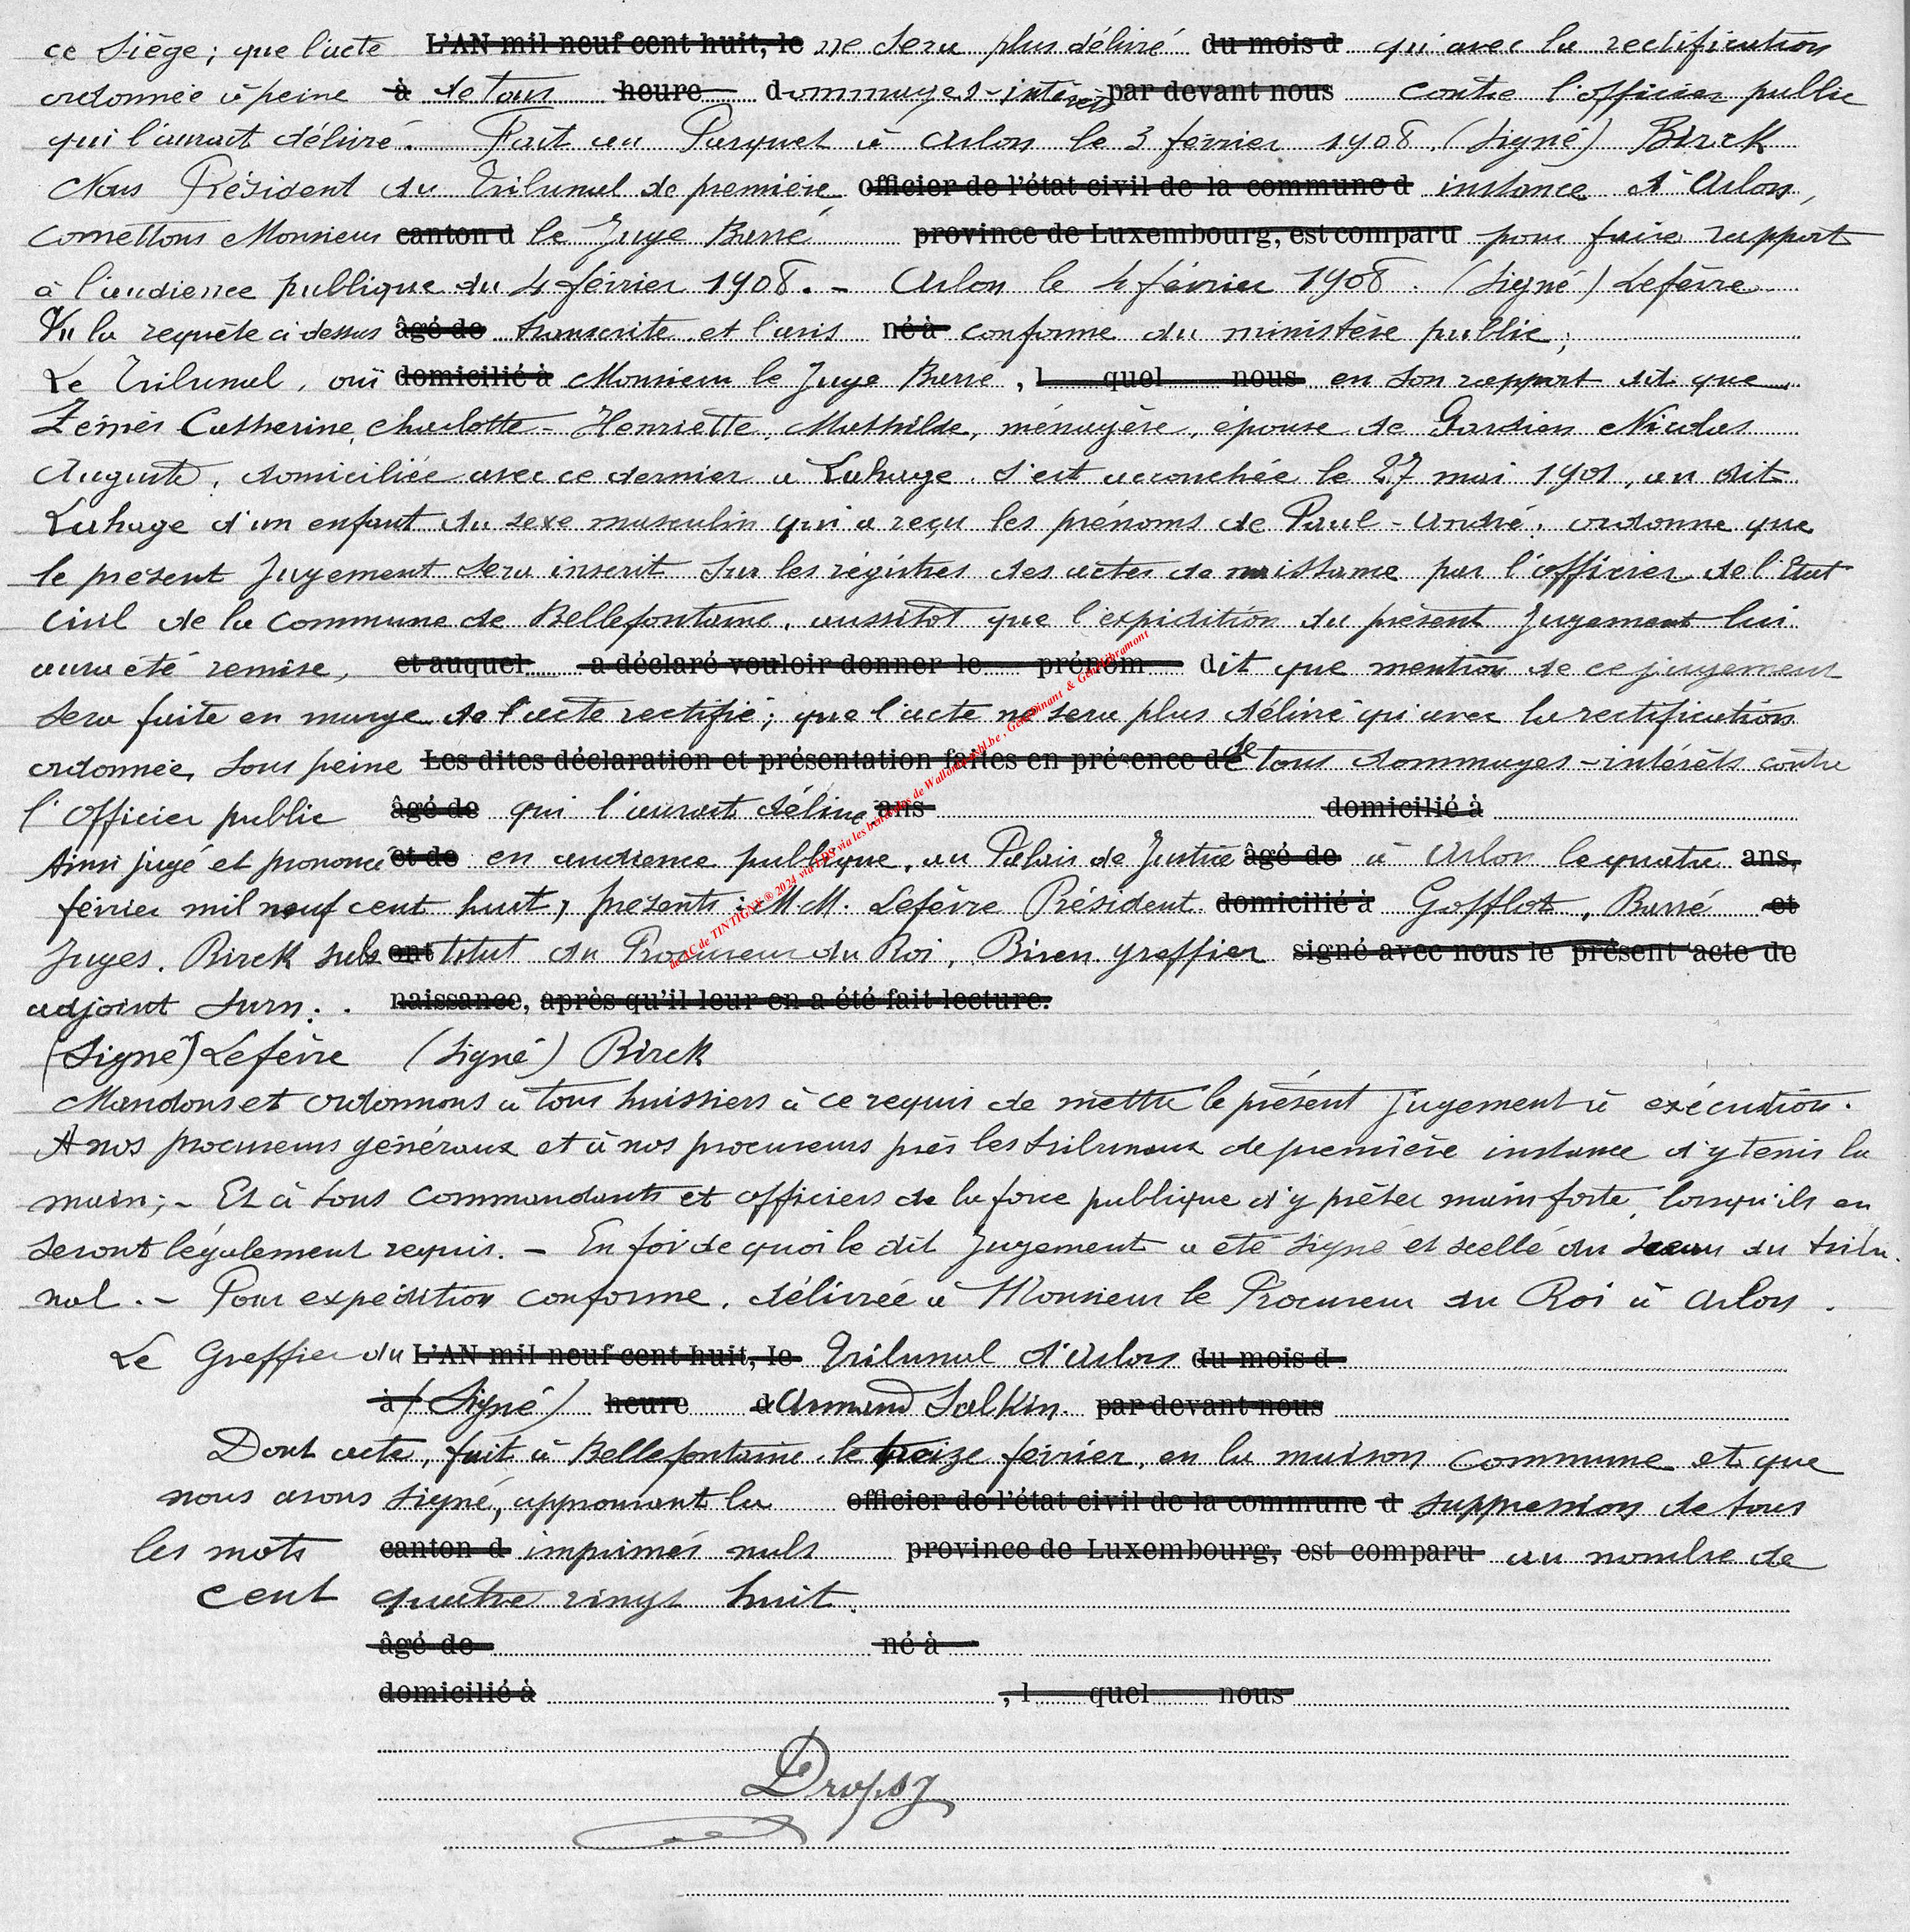 ce siège; que l'acte L'AN mil neuf cent huit, le ne sera plus délivré du mois d qu'avec la rectification
ordonnée à peine à de tous heure dommages-intérêts par devant nous contre l'officier public
qui l'aurait délivré. Fait au Parquet à Arlon le 3 février 1908. (Signé) Birck
Nous Président du Tribunal de première officier de l'état civil de la commune d instance d'Arlon,
comettons Monsieur canton d le Juge Burré province de Luxembourg, est comparu pour faire rapport
à l'audience publique du 4 février 1908. - Arlon le 4 février 1908. (Signé) Lefèvre
Vu la requête ci dessus âgé de transcrite et l'avis né à conforme du ministère public;
Le Tribunal, ouï domicilié à Monsieur le Juge Burré, l quel nous en son rapport dit que
Zeimes Catherine, Charlotte - Henriette, Mathilde, ménagère, épouse de Gardien Nicolas
Auguste, domiciliée avec ce dernier à Lahage, s'est accouchée le 27 mai 1901, au dit
Lahage d'un enfant du sexe masculin qui a reçu les prénoms de Paul - André; ordonne que
le présent Jugement sera inscrit sur les régistres des actes de naissance par l'officier de l'Etat
civil de la commune de Bellefontaine, aussitot que l'expédition du présent Jugement lui
aura été remise, et auquel a déclaré vouloir donner le prénom dit que mention de ce jugement
sera faite en marge de l'acte rectifié; que l'acte ne sera plus délivré qu'avec la rectification
ordonnée, sous peine Les dites déclaration et présentation faites en présence de de tous dommages-intérêts contre
l'Officier public âgé de qui l'aurait délivré ans domicilié à
Ainsi jugé et prononcé et de en audience publique, au Palais de Justice âgé de à Arlon le quatre ans,
février mil neuf cent huit, présents: M.M. Lefèvre Président domicilié à Gofflot, Burré et
Juges, Birck subs ont titut du Procureur du Roi, Biren greffier signé avec nous le présent acte de
adjoint surn. naissance, après qu'il leur en a été fait lecture.
(Signé) Lefèvre (Signé) Birck
Mandons et ordonnons à tous huissiers à ce requis de mettre le présent Jugement à exécution.
A nos procureurs généraux et à nos procureurs près les tribunaux de première instance d'y tenir la
main; - Et à tous commandants et officiers de la force publique d'y prêter main forte, lorsqu'ils en
seront légalement requis. - En foi de quoi le dit Jugement a été signé et scellé du sceau du tribu
nal. - Pour expédition conforme, délivrée à Monsieur le Procureur du Roi à Arlon.
Le Greffier du L'AN mil neuf cent huit, le Tribunal d'Arlon du mois d
à (Signé) heure d Armand Salkin. par devant nous
Dont acte, fait à Bellefontaine, le treize février, en la maison commune et que
nous avons signé, approuvant la officier de l'état civil de la commune d suppression de tous
les mots canton d imprimés nuls province de Luxembourg, est comparu au nombre de
cent quatre vingt huit.
âgé de né à
domicilié à , l quel nous
Dropsy